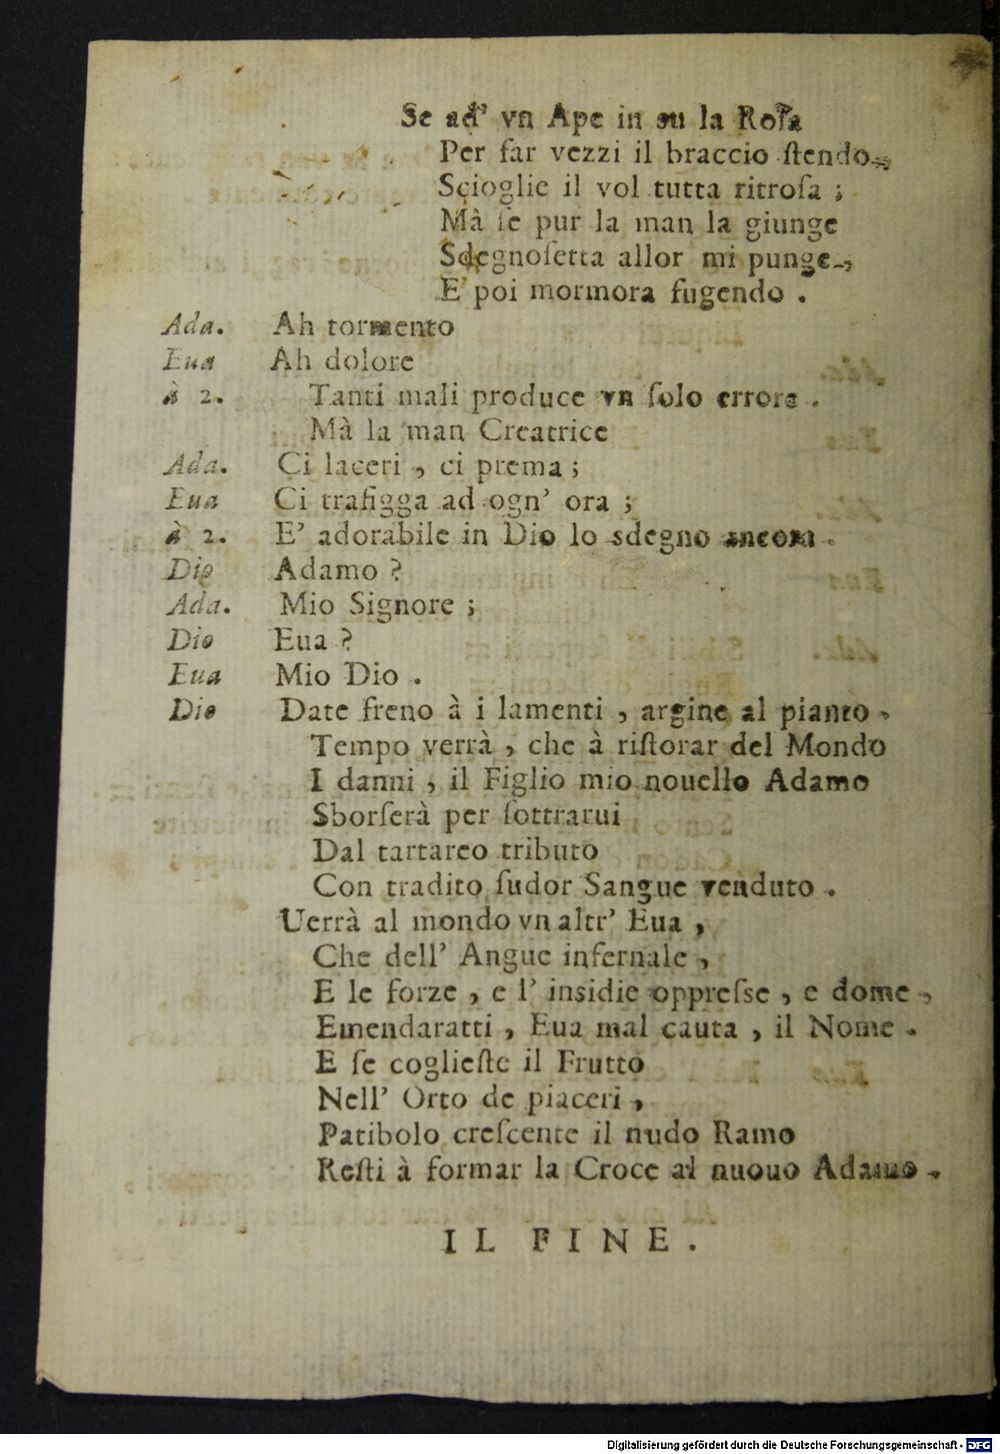 Se ad' vn Ape in su la Rosa
Per far vezzi il braccio ſtendo,
Scioglie il vol tutta ritroſa ;
Mà ſe pur la man la giunge
Sdegnoſetta allor mi punge,
E' poi mormora fugendo .
Ada. Ah tormento
Eua Ah dolore
à 2. Tanti mali produce vn ſolo errore .
Mà la man Creatrice
Ada. Ci laceri , ci prema ;
Eua Ci trafigga ad ogn' ora ;
à 2. E' adorabile in Dio lo sdegno ancora .
Dio Adamo ?
Ada. Mio Signore ;
Dio Eua ?
Eua Mio Dio .
Dio Date freno à i lamenti , argine al pianto ,
Tempo verrà , che à riſtorar del Mondo
I danni , il Figlio mio nouello Adamo
Sborſerà per ſottrarui
Dal tartareo tributo
Con tradito ſudor Sangue venduto .
Uerrà al mondo vn altr' Eua ,
Che dell' Angue infernale ,
E le forze , e l' insidie oppreſse , e dome ,
Emendaratti , Eua mal cauta , il Nome .
E ſe coglieſte il Frutto
Nell' Orto de piaceri ,
Patibolo creſcente il nudo Ramo
Reſti à formar la Croce al nuouo Adamo .
IL FINE .
Digitalisierung gefördert durch die Deutsche Forschungsgemeinschaft - DFG